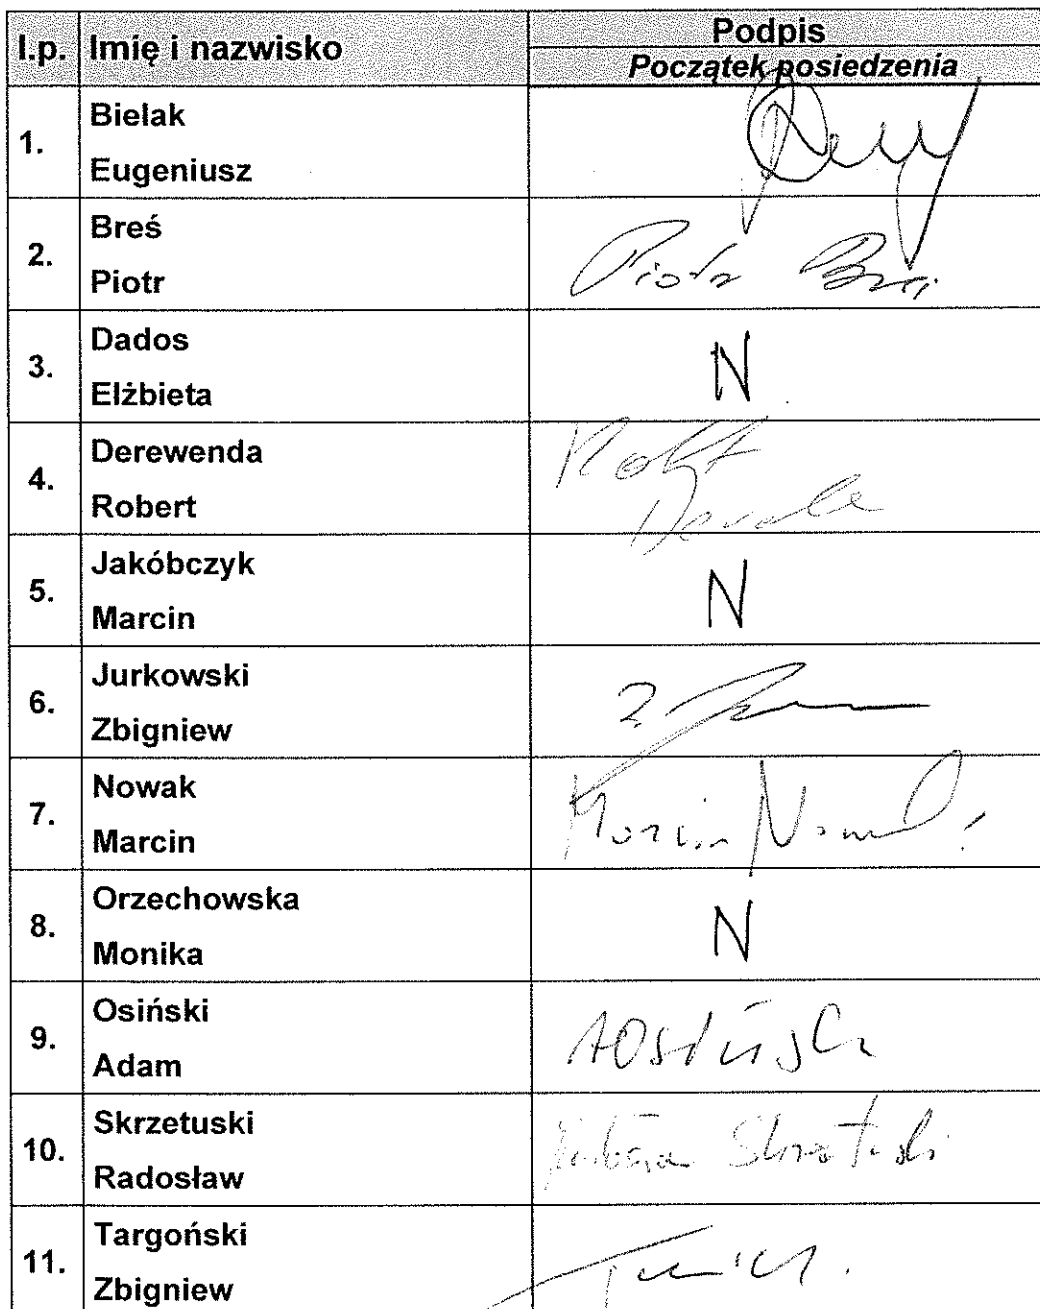 l.p. Imię i nazwisko Podpis
Początek posiedzenia
1. Bielak
Eugeniusz
2. Breś
Piotr
Piotr Breś
3. Dados
Elżbieta
N
4. Derewenda
Robert
Robert
5. Jakóbczyk
Marcin
N
6. Jurkowski
Zbigniew
Z.
7. Nowak
Marcin
Marcin Nowak
8. Orzechowska
Monika
N
9. Osiński
Adam
AOsiński
10. Skrzetuski
Radosław
Skrzetuski
11. Targoński
Zbigniew